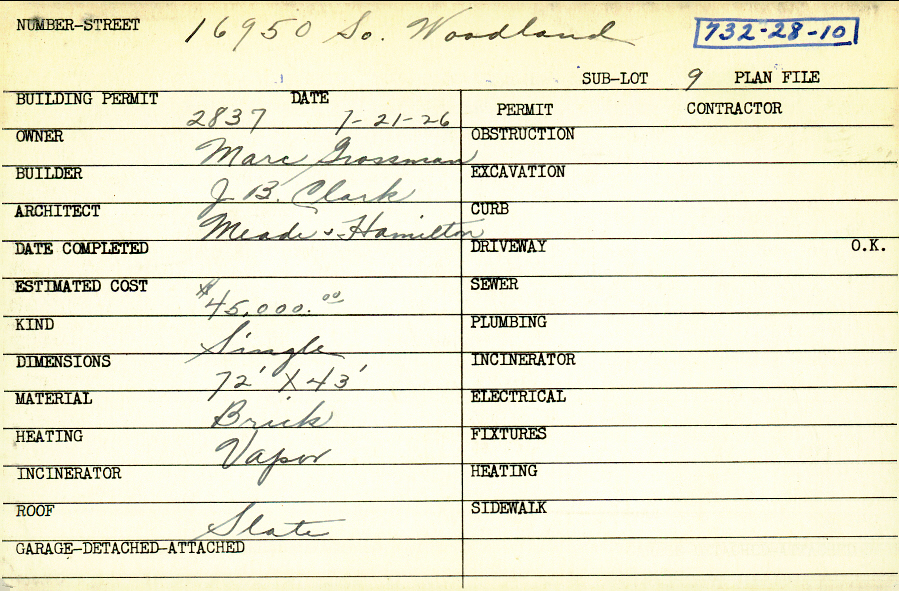 NUMBER-STREET 16950 So. Woodland 732-28-10
SUB-LOT 9 PLAN FILE
BUILDING PERMIT 2837 DATE 7-21-26
OWNER Marc Grossman
BUILDER J. B. Clark
ARCHITECT Meade & Hamilton
DATE COMPLETED
ESTIMATED COST $45,000.00
KIND Single
DIMENSIONS 72' X 43'
MATERIAL Brick
HEATING Vapor
INCINERATOR
ROOF Slate
GARAGE-DETACHED-ATTACHED
PERMIT CONTRACTOR
OBSTRUCTION
EXCAVATION
CURB
DRIVEWAY O.K.
SEWER
PLUMBING
INCINERATOR
ELECTRICAL
FIXTURES
HEATING
SIDEWALK